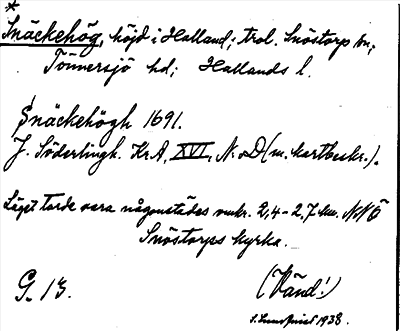 *
Snäckehög, höjd i Halland; trol. Snöstorp sn,
Tönnersjö hd; Hallands l.
Snäckehögh 1691.
J. Söderlingh. Kr.A, XVI, N:o D (m. kartbeskr.).
Läget torde vara någonstädes omkr. 2,4-2,7 km. NNÖ
Snöstorps kyrka.
G. 13.
(Vänd!)
1938.